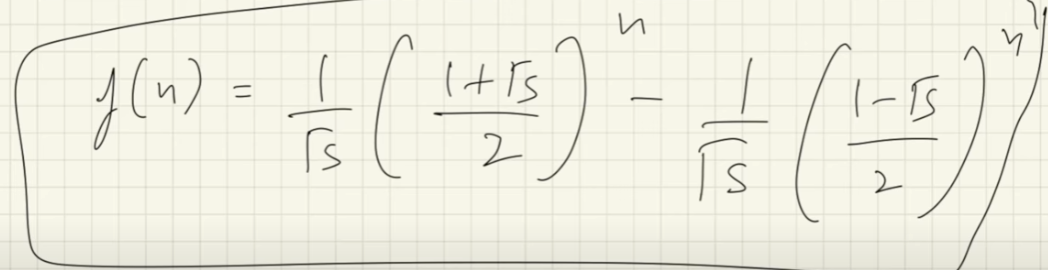 f(n) = 1/√5 ((1+√5)/2)^n - 1/√5 ((1-√5)/2)^n